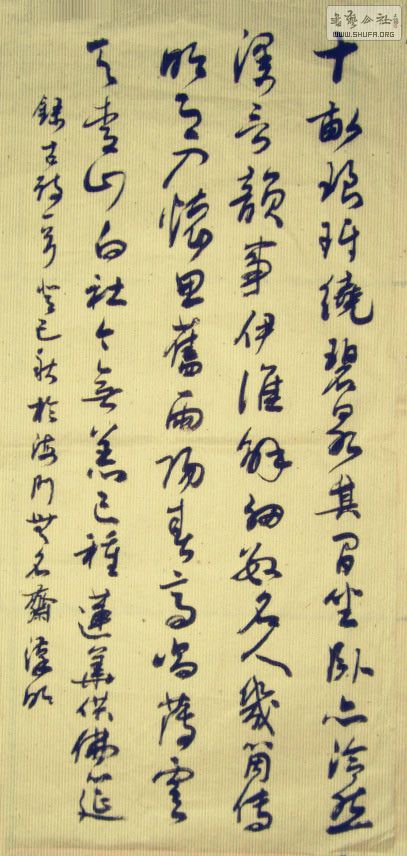 十畝琅玕繞碧泉其間坐臥亦泠然
深言韻事伊誰解細数名人幾箇傳
明月入懷思舊雨陽春高唱薄雲
天青山白社今無恙已種蓮華供佛筵
錄古詩一首癸巳秋於海門無名齋明
書藝公社
WWW.SHUFA.ORG